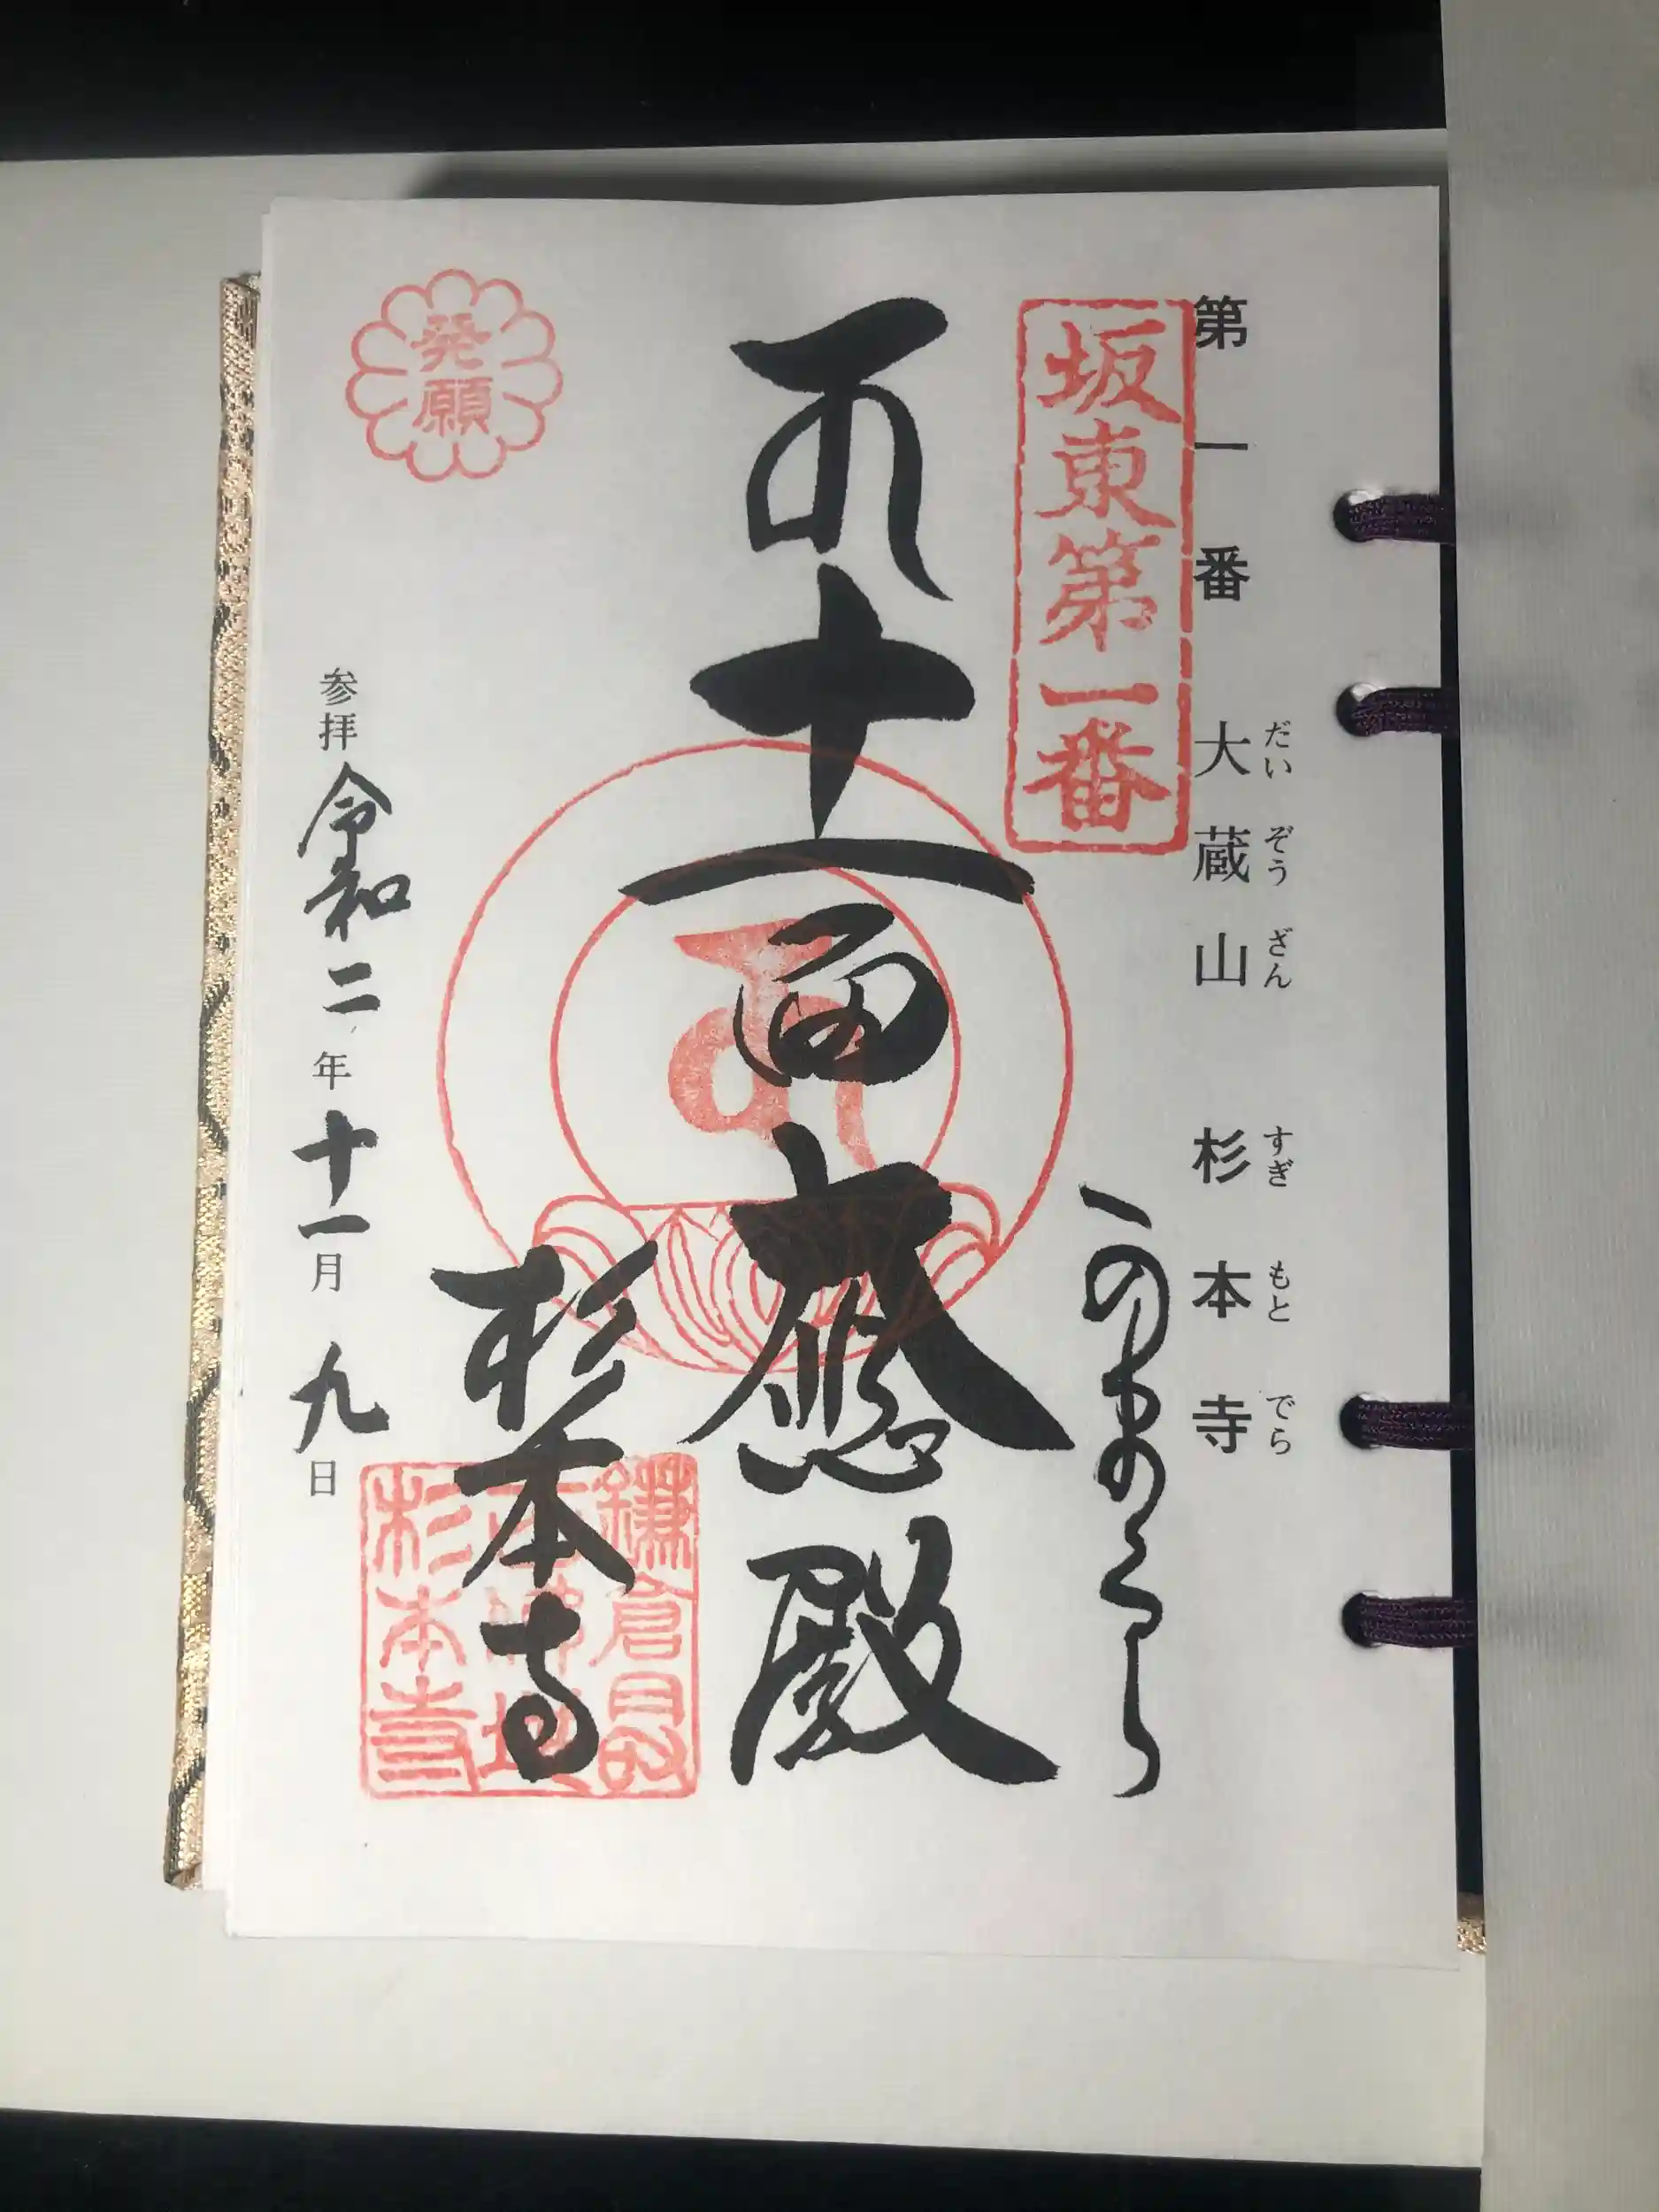 第一番 大蔵山 杉本寺
だいぞうざん すぎもとでら
坂東第一番
かまくら
十一面大悲殿
発願
杉本寺
鎌倉
杉本寺
参拝 令和二年十一月九日